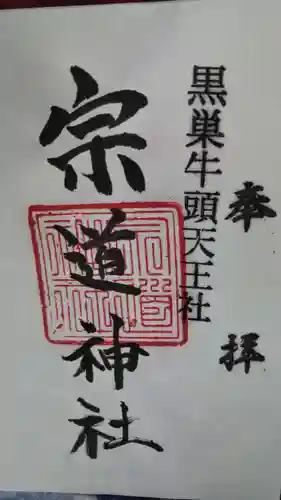 奉拝
黒巣牛頭天王社
宗道神社